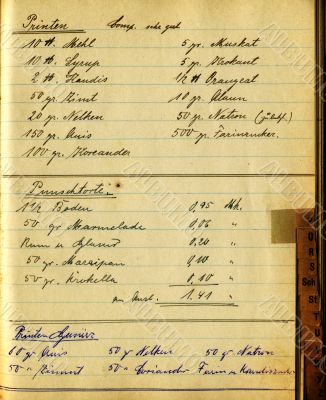 Printen Comp. sehr gut
10 ℔. Mehl 5 gr. Muskat
10 ℔. Syrup 5 gr.
2 ℔. Kandis 1/2 ℔ Orangeat
50 gr. Zimt 10 gr. Alaun
20 gr. Nelken 50 gr. Natron
150 gr. Anis 500 gr. Farinzucker.
100 gr. Koreander
Punschtorte:
1 1/2 Boden 0,95 Mk.
50 gr Marmelade 0,06 "
Rum u 0,20 "
50 gr. Marzipan 0,10 "
50 gr. 0,10 "
1.41 "
Printen
gr Anis 50 gr Nelken 50 gr Natron
50 " Zimmt 50 " Coriander Farin u
Q
R
S
Sch
St
T
U